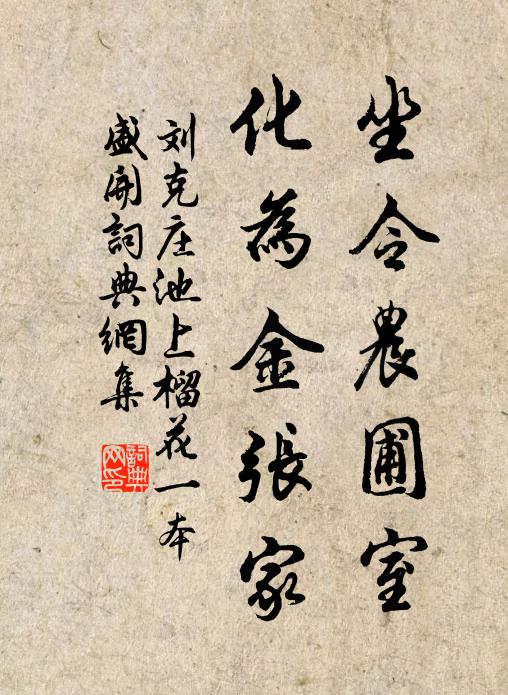 坐令農圃室
化為金張家
刘克庄池上榴花一本
盛開詞典網集
詞典
网印